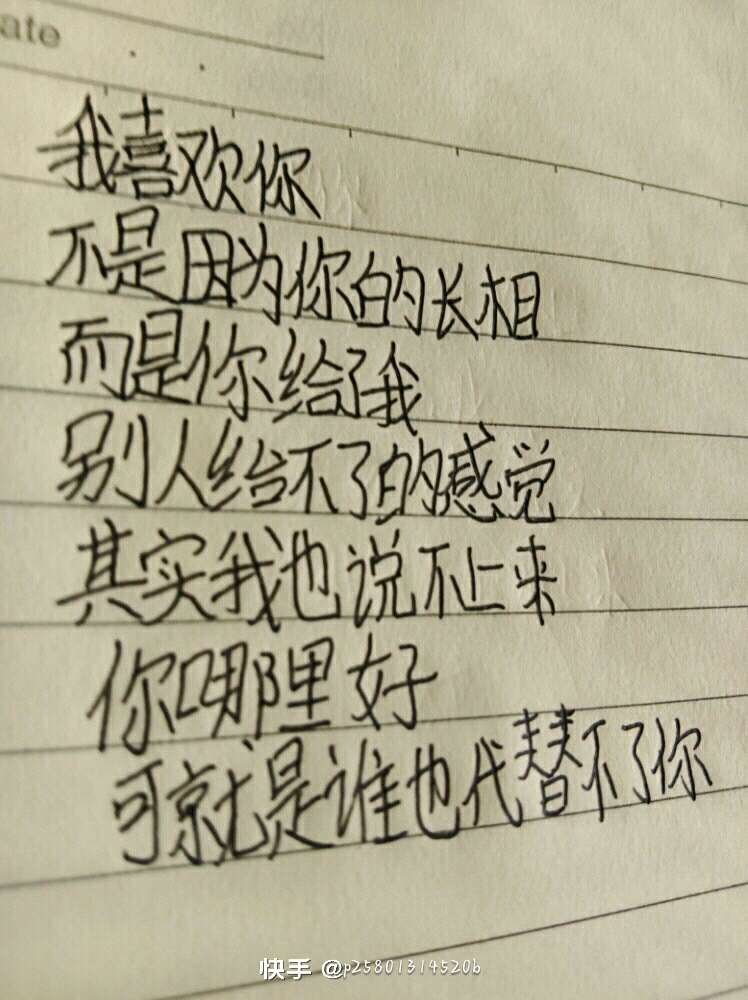 ate
我喜欢你
不是因为你的长相
而是你给了我
别人给不了的感觉
其实我也说不上来
你哪里好
可就是谁也代替不了你
快手 @p25801314520b